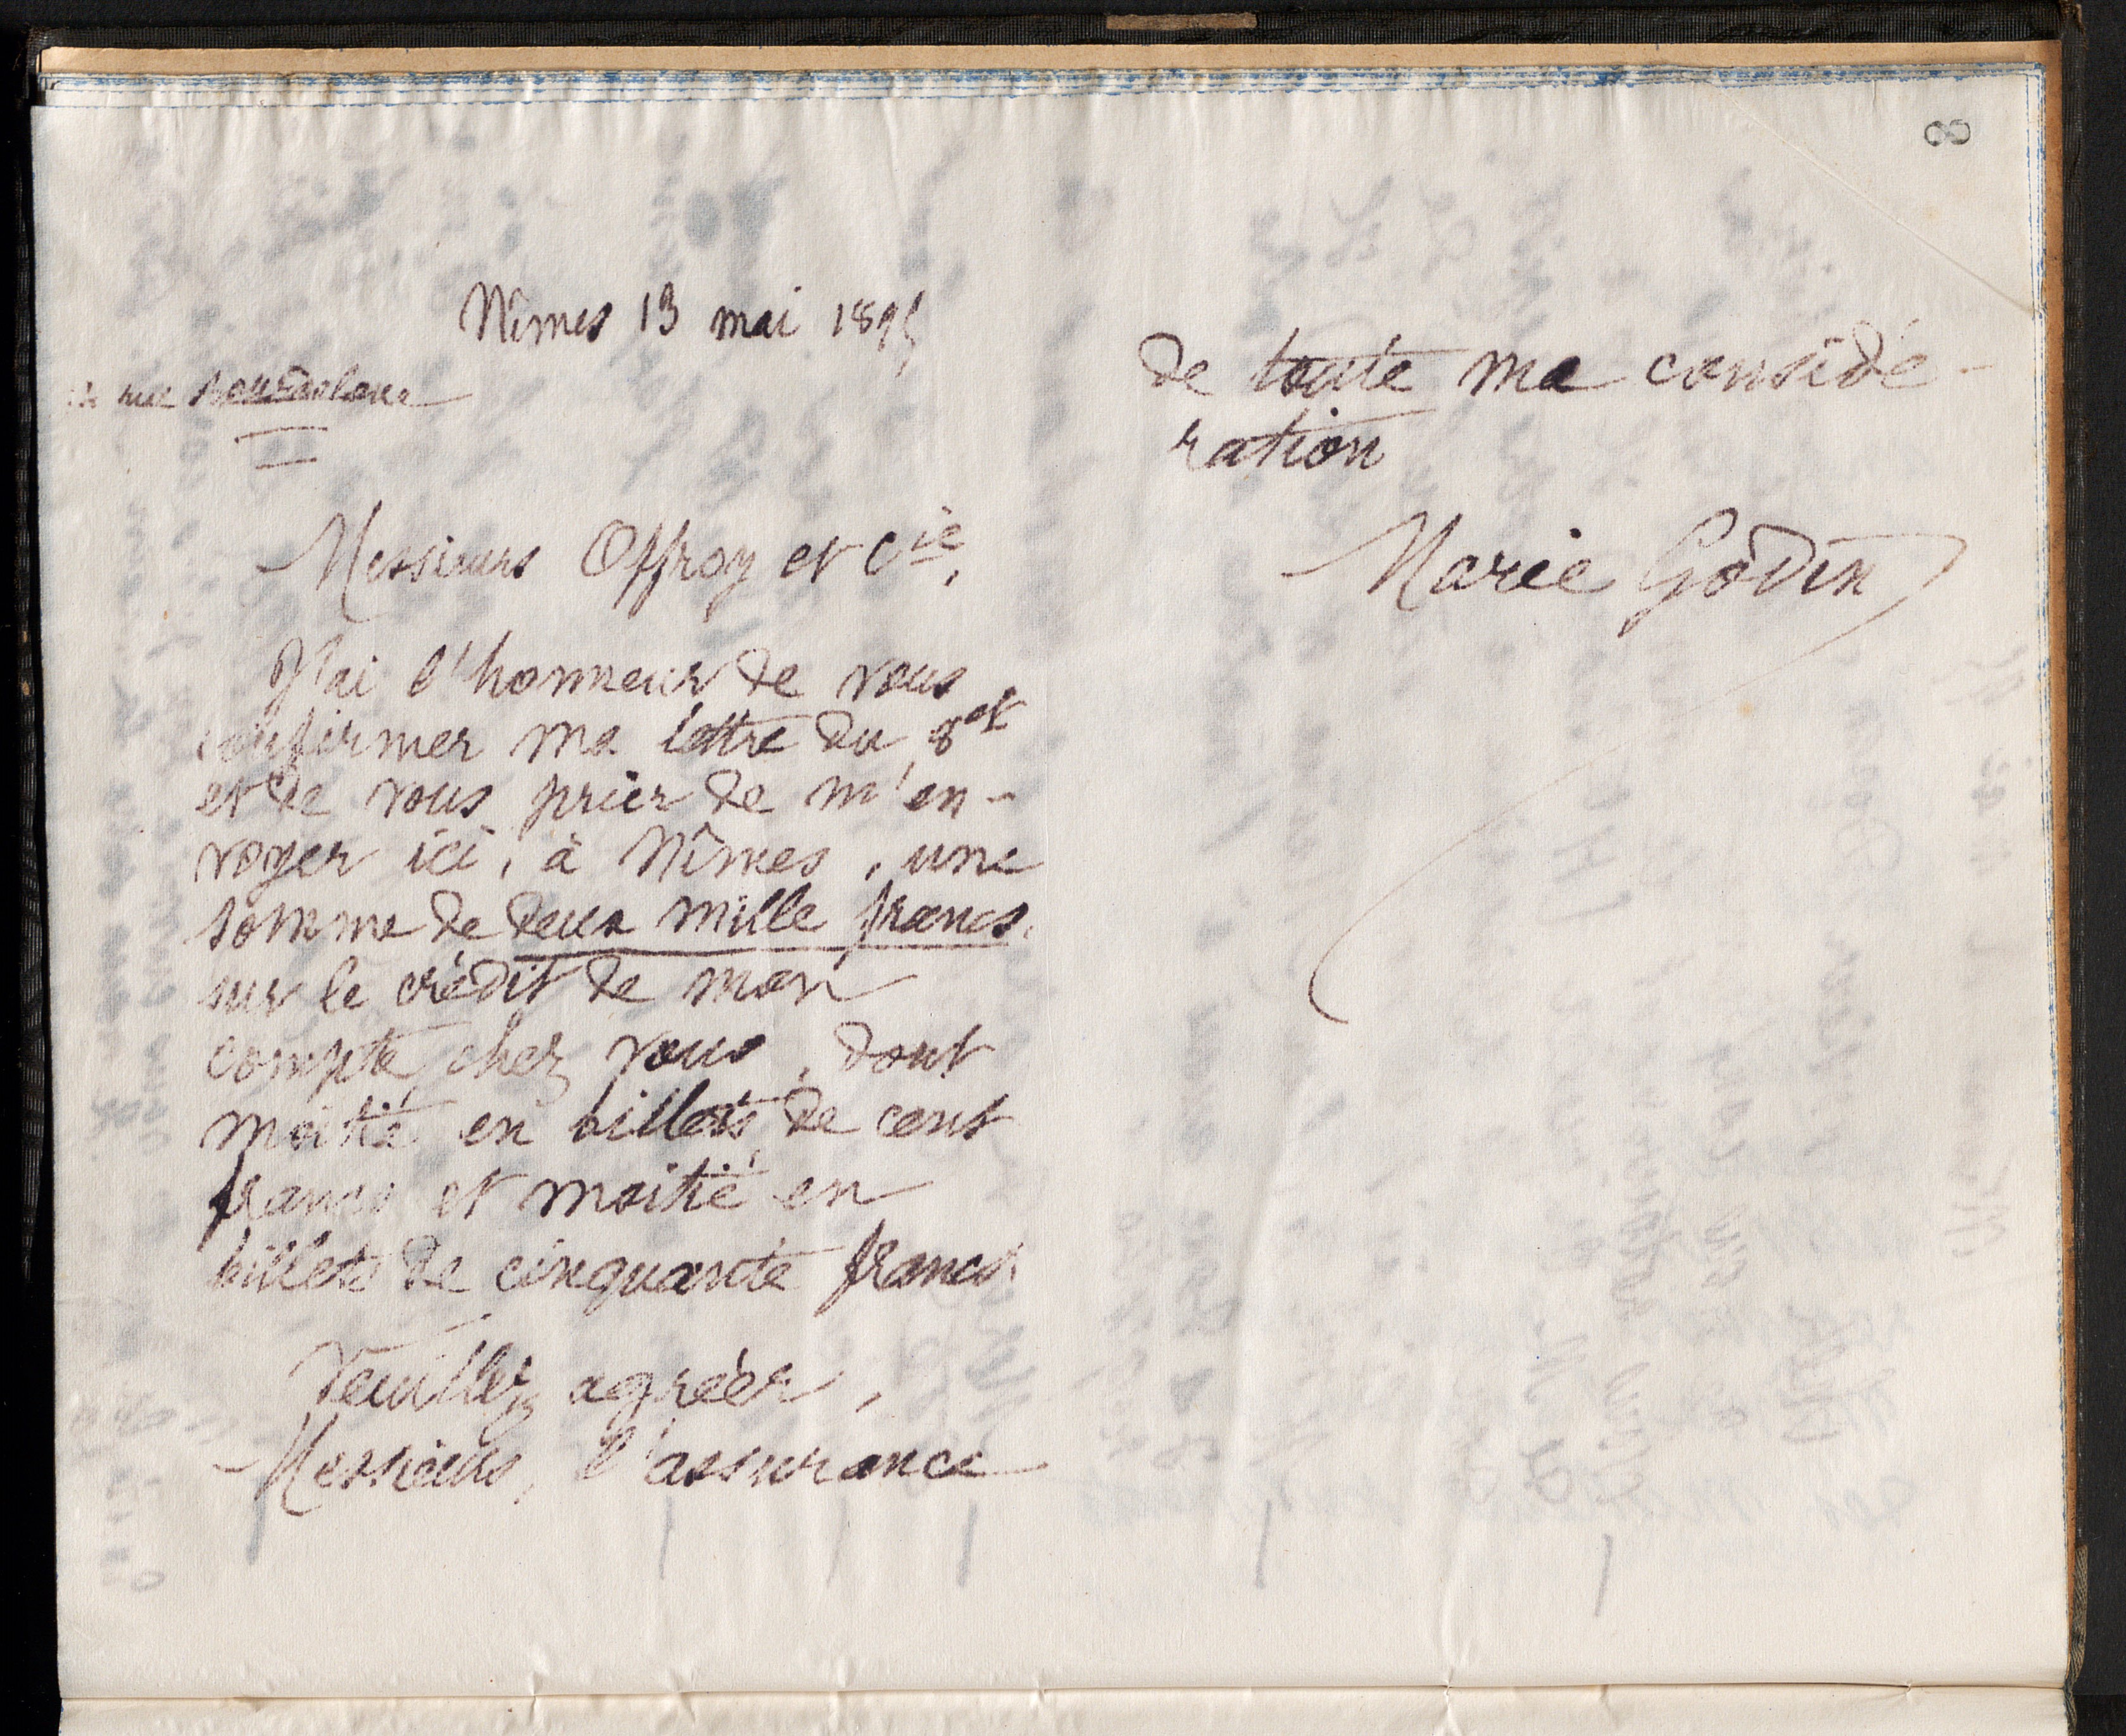 8
Nîmes 13 mai 1895
14 rue Bourdaloue
Messieurs Offroy et Cie,
J'ai l'honneur de vous
confirmer ma lettre du 8 ct
et de vous prier de m'en-
voyer ici, à Nîmes, une
somme de deux mille francs.
sur le crédit de mon
compte chez vous, dont
moitié en billets de cent
francs et moitié en
billets de cinquante francs
Veuillez agréer,
Messieurs, l'assurance
de toute ma considé-
ration
Marie Godin